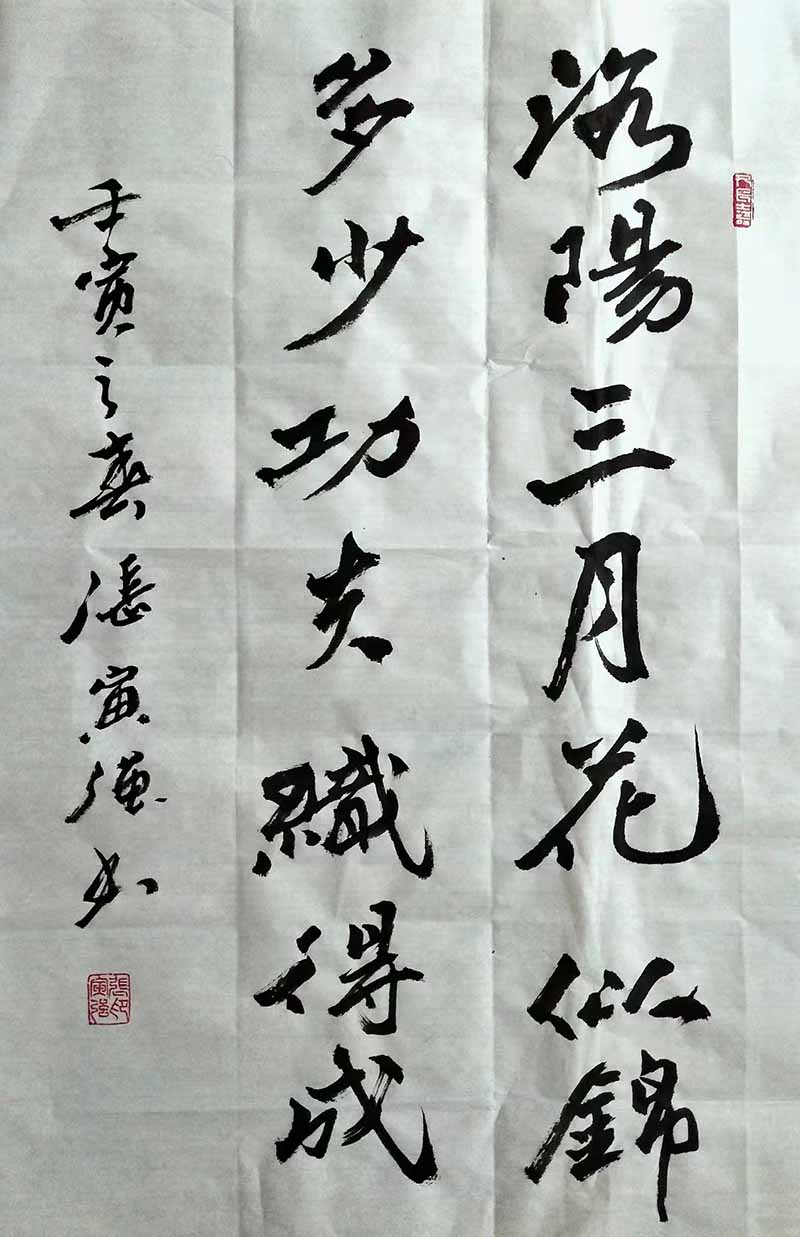 洛陽三月花似錦
多少功夫織得成
壬寅之春張寅強书
張印寅強